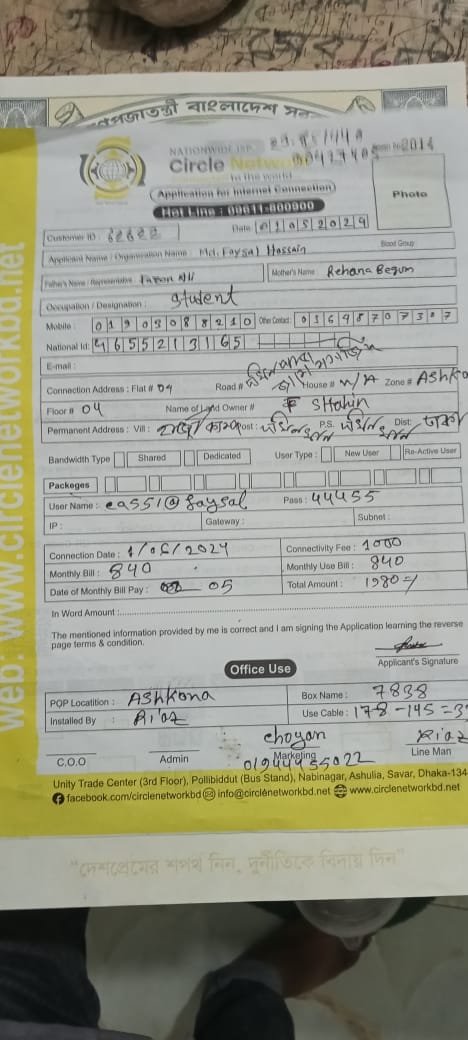 গণপ্রজাতন্ত্রী বাংলাদেশ সরকার
NATIONWIDE ISP
2014
Circle Network
to the world
Application for Internet Connection
Photo
Hot Line : 09611-800900
Customer ID : 62622
Date 01052024
Applicant Name / Organization Name : Md. Faysal Hossain
Blood Group
Father's Name / Representative
Mother's Name : Rehana Begum
Occupation / Designation : student
Mobile : 01903088210 Other Contact : 01648707307
National Id: 4655213165
E-mail :
Connection Address : Flat # 04 Road # House # N/A Zone # Ashko
Floor # 04 Name of Land Owner # SHahin
Permanent Address : Vill : Post : P.S. Dist: ঢাকা
Bandwidth Type Shared Dedicated User Type : New User Re-Active User
Packeges
User Name : eas51@faysal Pass : 44455
IP : Gateway : Subnet :
Connection Date : 1/05/2024 Connectivity Fee : 1000
Monthly Bill : 840 Monthly Use Bill : 840
Date of Monthly Bill Pay : 05 Total Amount :
In Word Amount :
The mentioned information provided by me is correct and I am signing the Application learning the reverse
page terms & condition.
Applicant's Signature
Office Use
POP Locatition : Ashkona Box Name : 7838
Installed By : Riaz Use Cable : 178-145=3
choyan Riaz
C.O.O Admin Marketing Line Man
01944455022
Unity Trade Center (3rd Floor), Pollibiddut (Bus Stand), Nabinagar, Ashulia, Savar, Dhaka-134
facebook.com/circlenetworkbd info@circlenetworkbd.net www.circlenetworkbd.net
web: www.circlenetworkbd.net
"দেশপ্রেমের শপথ নিন, দুর্নীতিকে বিদায় দিন"